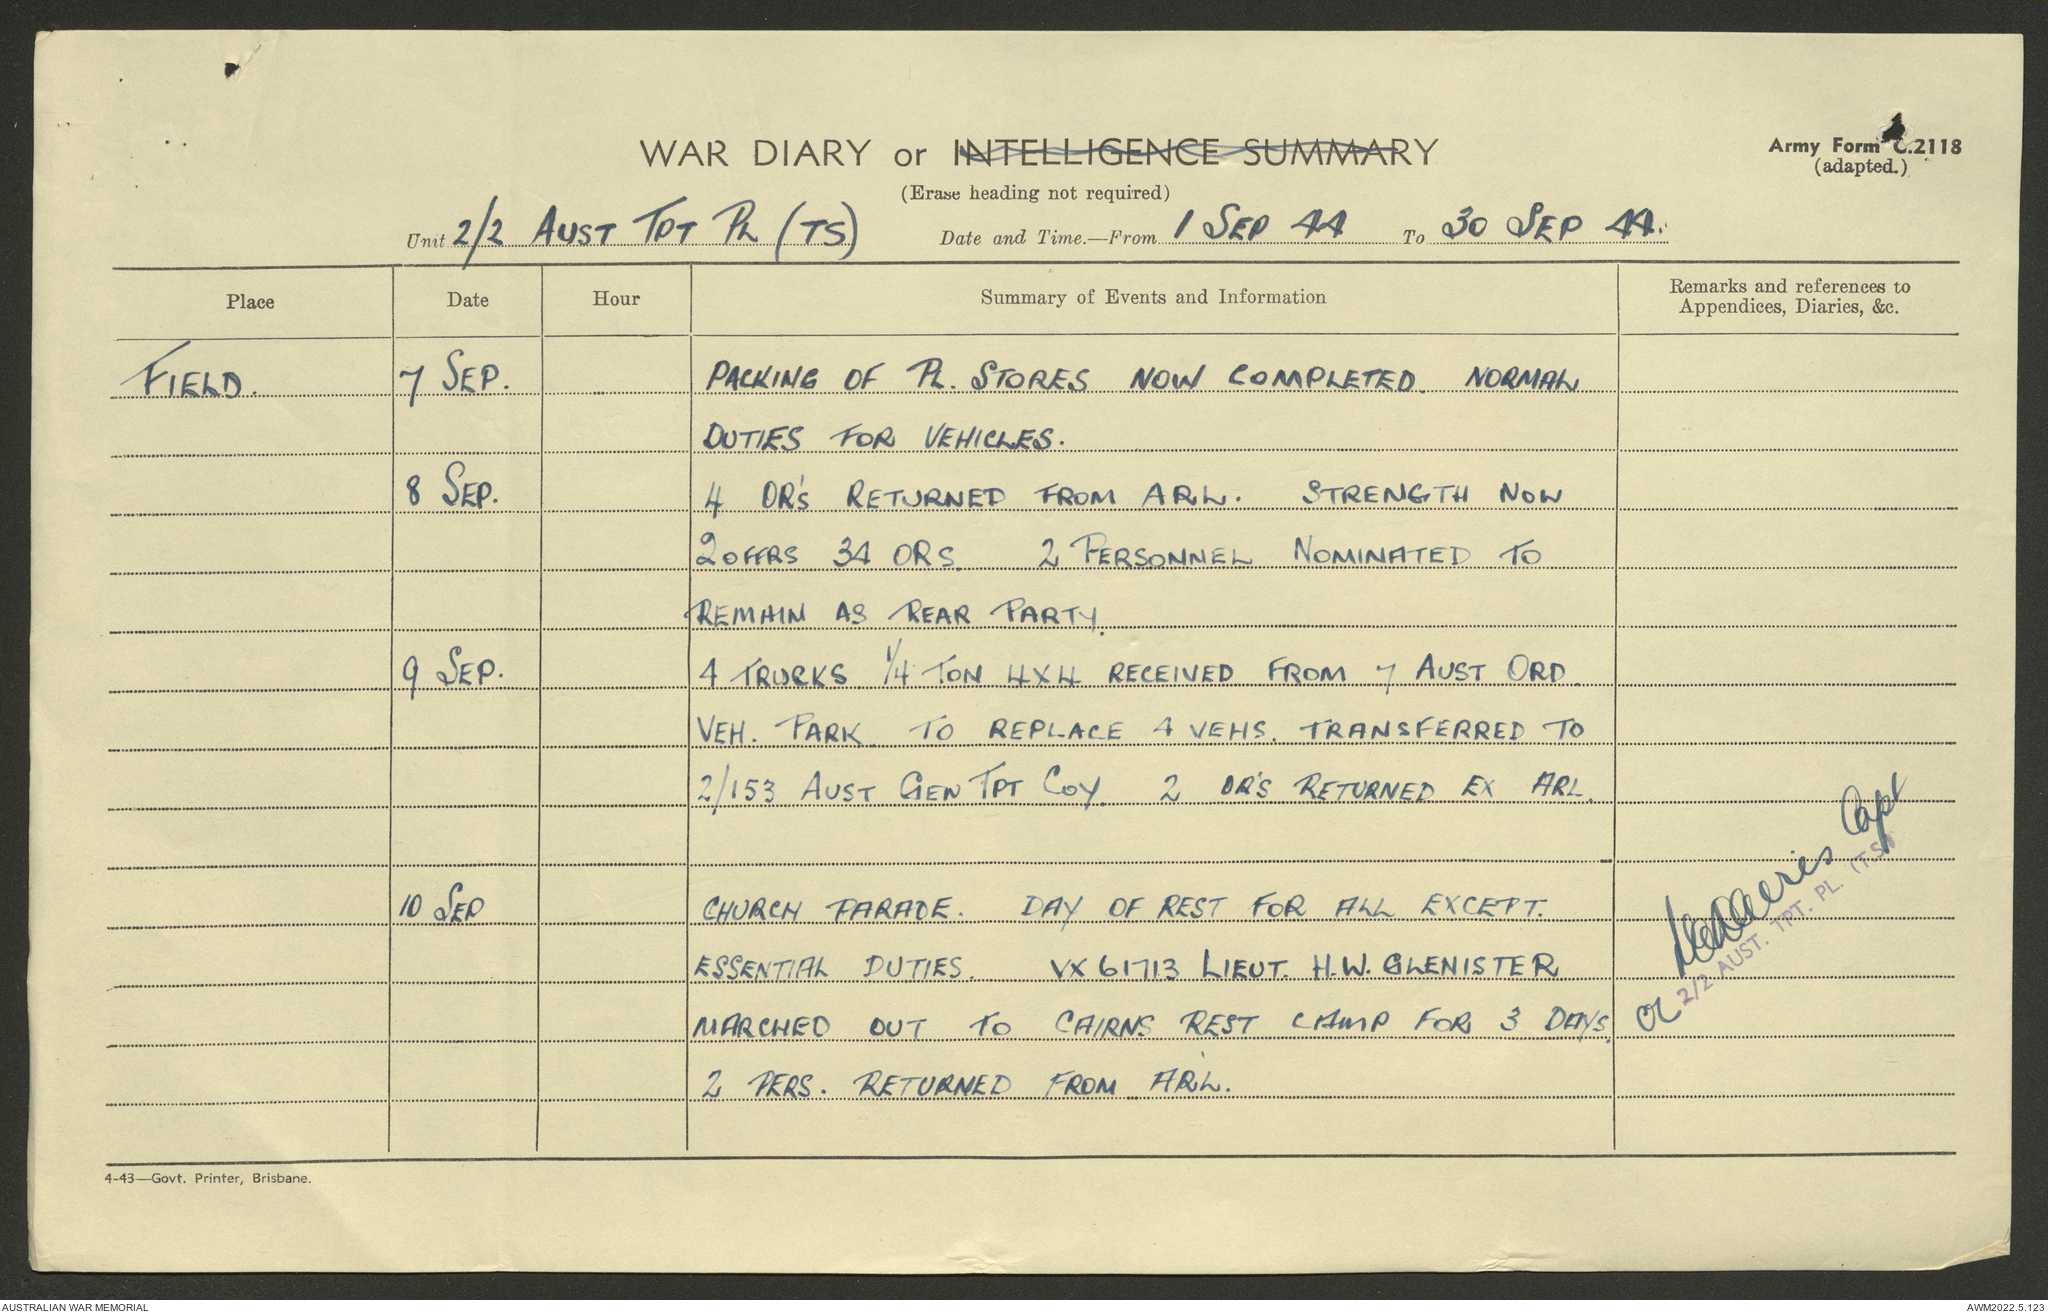 WAR DIARY or INTELLIGENCE SUMMARY
Army Form C.2118
(adapted.)
(Erase heading not required)
Unit 2/2 AUST TPT PL (TS) Date and Time.—From 1 SEP 44 To 30 SEP 44.
Place Date Hour Summary of Events and Information Remarks and references to Appendices, Diaries, &c.
FIELD. 7 SEP. PACKING OF PL. STORES NOW COMPLETED. NORMAL
DUTIES FOR VEHICLES.
8 SEP. 4 OR'S RETURNED FROM ARL. STRENGTH NOW
2 OFFRS 34 ORS. 2 PERSONNEL NOMINATED TO
REMAIN AS REAR PARTY.
9 SEP. 4 TRUCKS 1/4 TON 4X4 RECEIVED FROM 7 AUST ORD
VEH. PARK TO REPLACE 4 VEHS. TRANSFERRED TO
2/153 AUST GEN TPT COY. 2 OR'S RETURNED EX ARL.
10 SEP CHURCH PARADE. DAY OF REST FOR ALL EXCEPT.
ESSENTIAL DUTIES. VX 61713 LIEUT. H.W. GLENISTER
MARCHED OUT TO CAIRNS REST CAMP FOR 3 DAYS.
2 PERS. RETURNED FROM ARL.
Capt
OC 2/2 AUST. TPT. PL. (T.S.)
4-43—Govt. Printer, Brisbane.
AUSTRALIAN WAR MEMORIAL
AWM2022.5.123